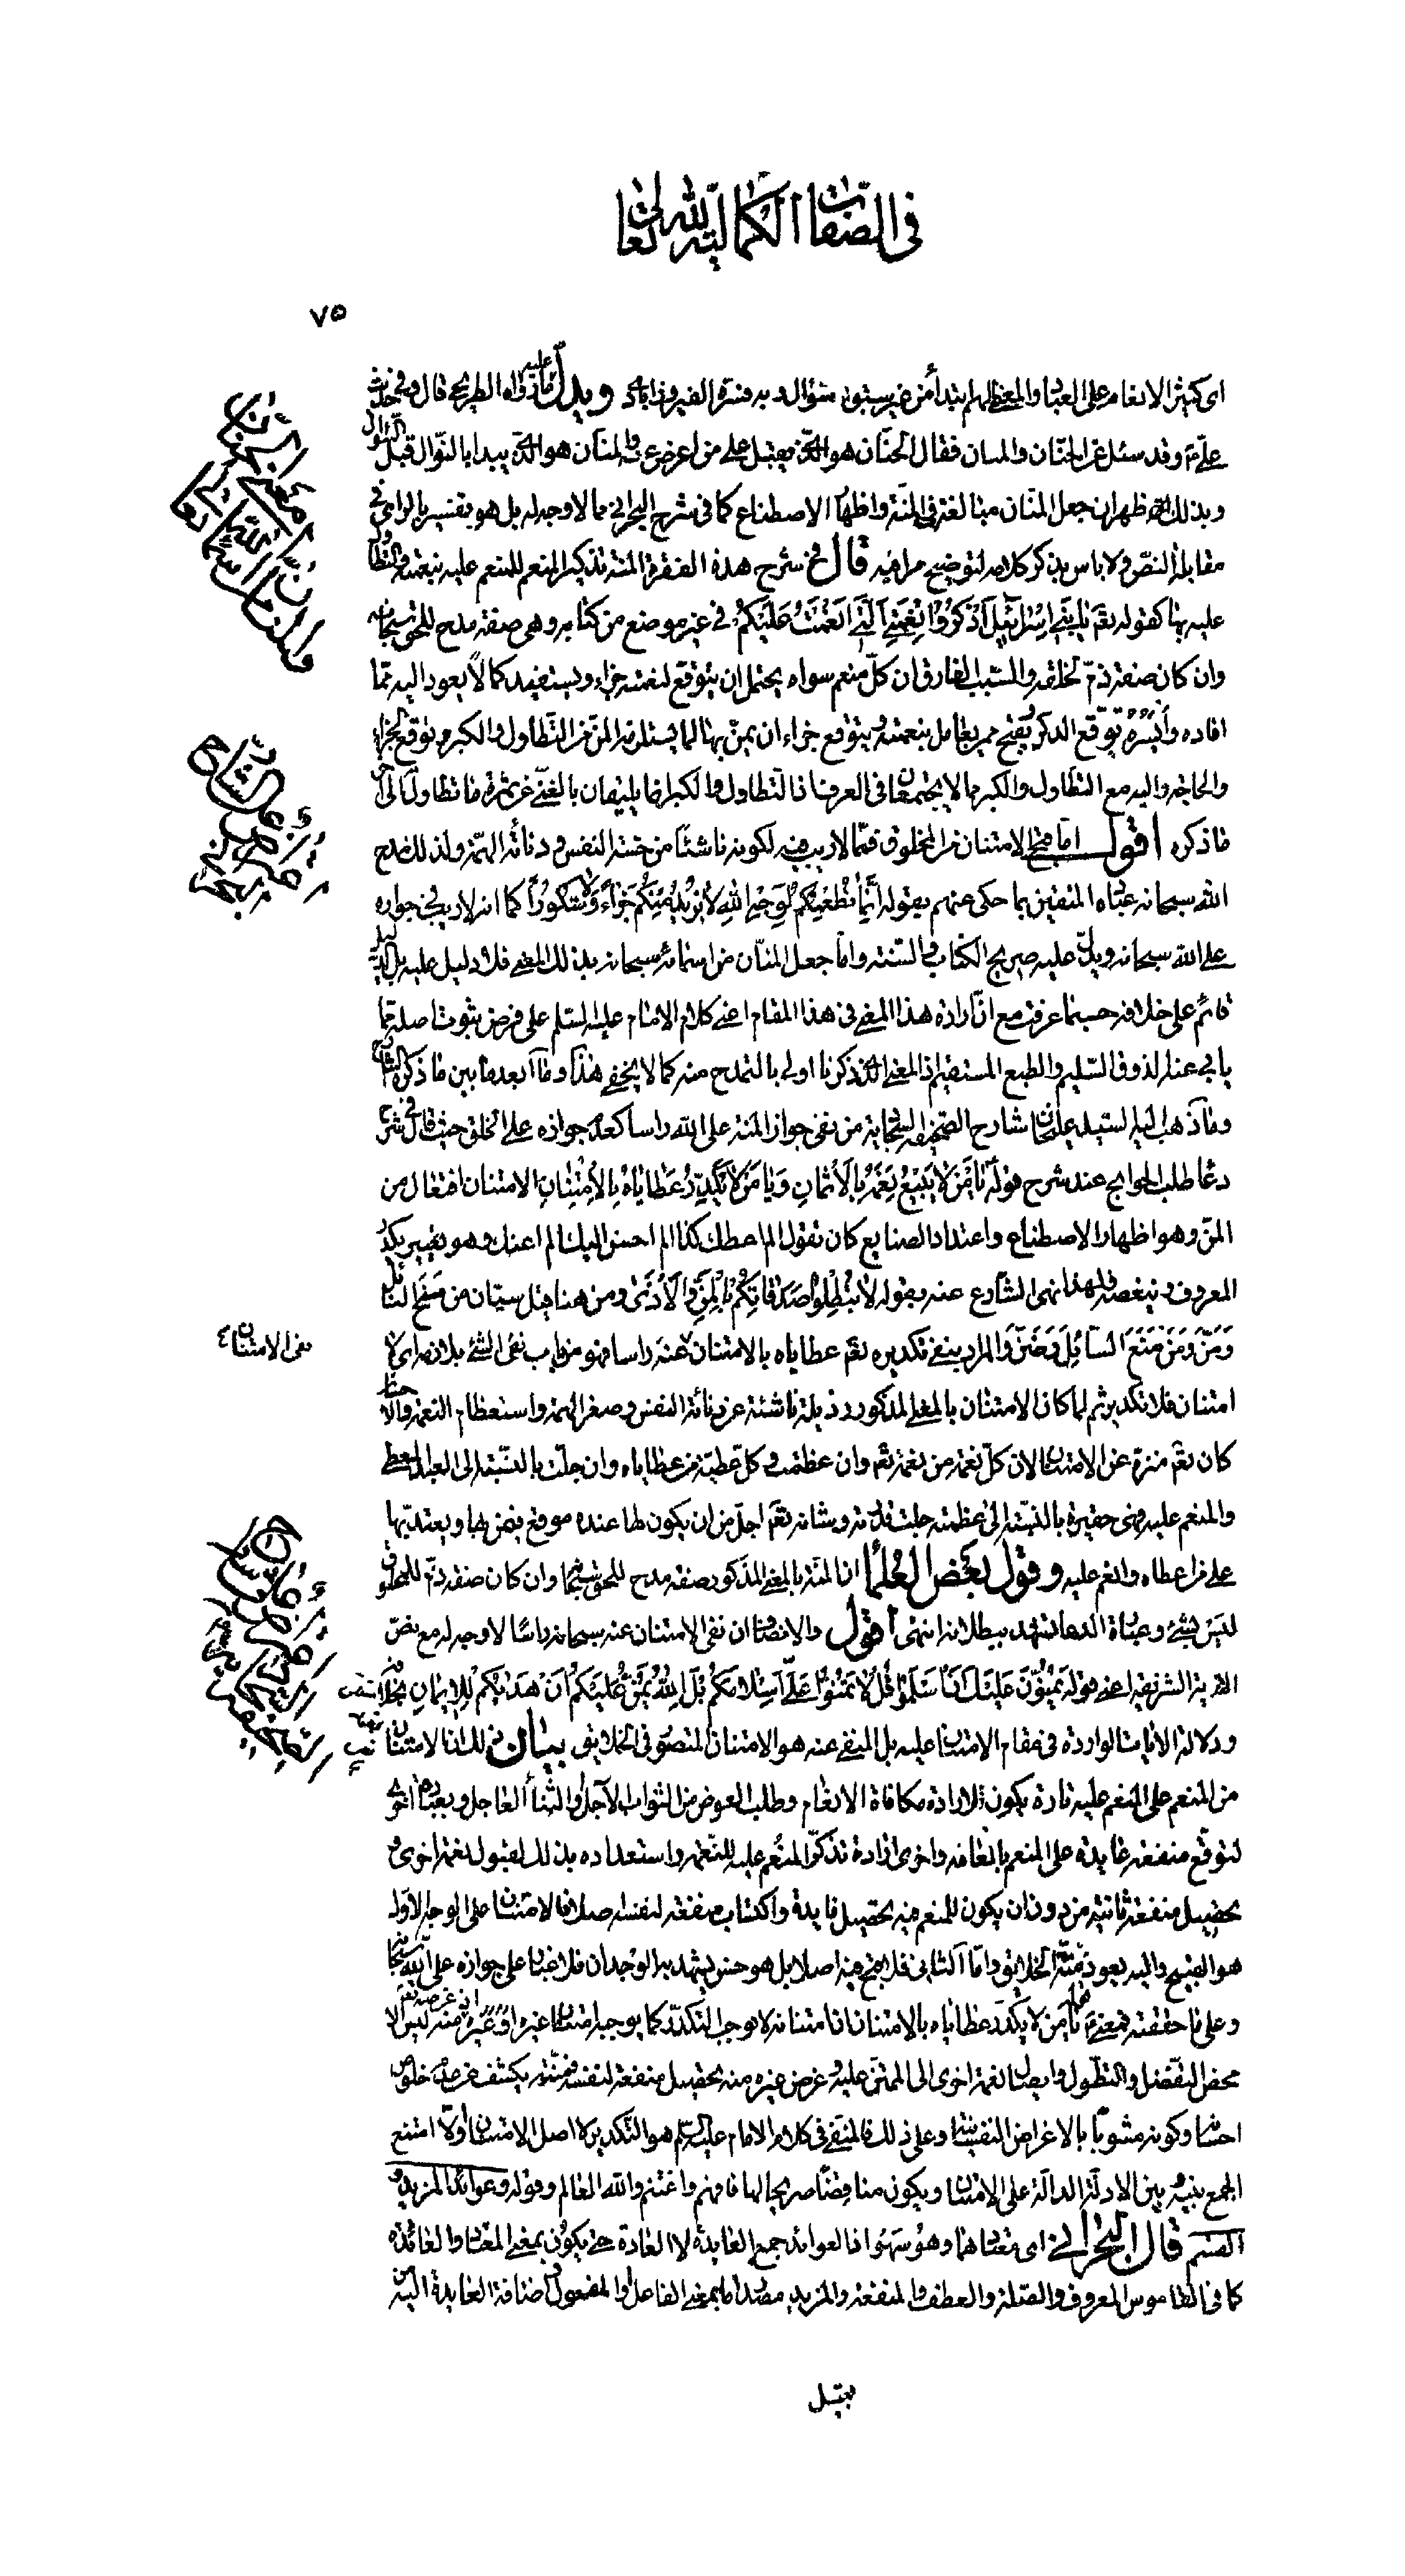 في الصفات الكمالية لله تعالى
٧٥
اى كثير الانعام على العباد والمعطى لهم ابتداء من غير سبق سؤال وبه فسّره الفيروزابادى ويدل عليه ما رواه الطريحى قال وفى حديث
علىّ ع وقد سئل عن الحنّان والمنان فقال الحنّان هو الّذى يقبل على من اعرض عنه والمنّان هو الّذى يبدء بالنّوال قبل السّؤال
وبذلك كله ظهر ان جعل المنّان مبالغة فى المنّة واظهار الاصطناع كما فى شرح البحرانى مما لا وجه له بل هو تفسير بالراى فى
مقابلة النصّ ولا باس بذكر كلامه لتوضيح مرامه قال فى شرح هذه الفقرة المنّة تذكير المنعم للمنعم عليه بنعمته والتطاول
عليه بها كقوله تعم يا بَنى اِسْرائيلَ اذْكُرُوا نِعْمَتِىَ الَّتى اَنْعَمْتُ عَلَيْكُمْ فى غير موضع من كتابه وهى صفة مدح للحق سبحانه
وان كان صفة ذمّ لخلقه والسّبب الفارق ان كلّ منعم سواه يحتمل ان يتوقع لنعمته جزاء ويستفيد كمالاً يعود اليه ممّا
افاده وأيسره توقّع الذكر ويقبح ممن يعامل بنعمته ويتوقع جزاء ان يمنّ بها لما يستلزمه المنّ من التّطاول والكبر وتوقع الجزاء
والحاجة اليه مع التطاول والكبر مما لا يجتمعان فى العرف اذ التطاول والكبر انما يليقان بالغنىّ عن ثمرة ما تطاول به الى اخر
ما ذكره اقول امّا قبح الامتنان من المخلوق فممّا لا ريب فيه لكونه ناشئا من خسّة النفس ودنائة الهمّة ولذلك مدح
الله سبحانه عباده المتقين بما حكى عنهم بقوله اِنَّما نُطْعِمُكُمْ لِوَجْهِ اللهِ لا نُرِيدُ مِنْكُمْ جَزاءً وَلا شُكُورًا كما انه لا ريب فى جوازه
على الله سبحانه ويدلّ عليه صريح الكتاب والسّنة وامّا جعل المنّان من اسمائه سبحانه بذلك المعنى فلا دليل عليه بل الدليل
قائم على خلافه حسبما عرفت مع انّ ارادة هذا المعنى فى هذا المقام اعنى كلام الامام عليه السلم على فرض ثبوت اصله مما
يابى عنه الذوق السّليم والطبع المستقيم اذ المعنى الذى ذكرنا اولى بالتمدح منه كما لا يخفى هذا وما ابعد ما بين ما ذكره الشارح
وما ذهب اليه السيد عليخان شارح الصحيفة السجادية من نفى جواز المنة على الله راسا كعدم جوازه على الخلق حيث قال فى شرح
دعاء طلب الحوائج عند شرح قوله يا مَنْ لا يَبيعُ نِعَمَهُ بِالْاَثْمانِ وَيا مَنْ لا يُكَدِّرُ عَطاياهُ بِالْاِمْتِنانِ الامتنان افتعال من
المنّ وهو اظهار الاصطناع واعتداد الصنايع كان تقول الم اعطك كذا الم احسن اليك الم اعنك وهو تعيير يكدّر
المعروف وينغصه ولهذا نهى الشارع عنه بقوله لا تُبْطِلُوا صَدَقاتِكُمْ بِالْمَنِّ وَالْاَذى ومن هنا قيل سيّان من مَنَحَ النائل
وَمَنَّ وَمَنْ مَنَعَ السّائِلَ وَضَنَّ والمراد بنفى تكديره تعم عطاياه بالامتنان نفى الامتنان عنه راسا فهو من باب نفى الشئ بلازمه اى لا
امتنان فلا تكدير ثم لما كان الامتنان بالمعنى المذكور رذيلة ناشئة عن دنائة النفس وصغر الهمة واستعظام النعمة والاحسان
كان تعم منزه عن الامتنان لان كلّ نعمة من نعمه تعم وان عظمت وكلّ عطيّة من عطاياه وان جلّت بالنّسبة الى العبد المعطى
والمنعم عليه فهى حقيرة بالنّسبة الى عظمته جلت قدرته وشانه تعم اجلّ من ان يكون لها عنده موقع فيمن بها ويعتد بها
على من اعطاه وانعم عليه وقول بعض العلماء ان المنّة بالمعنى المذكور صفة مدح للحق سبحانه وان كان صفة ذمّ للمخلوق
ليس بشئ وعبارة الدعاء تشهد ببطلانه انتهى اقول والانصاف ان نفى الامتنان عنه سبحانه راسًا لا وجه له مع نصّ
الاية الشريفة اعنى قوله يَمُنُّونَ عَلَيْكَ اَنْ اَسْلَمُوا قُلْ لا تَمُنُّوا عَلَىَّ اِسْلامَكُمْ بَلِ اللهُ يَمُنُّ عَلَيْكُمْ اَنْ هَداكُمْ لِلْايمانِ بخلافه
ودلالة الايات الواردة فى مقام الامتنان عليه بل المنفى عنه هو الامتنان المتصوّر فى الخلايق بيان ذلك ان الامتنان
من المنعم على المنعم عليه تارة يكون لارادة مكافاة الانعام وطلب العوض من الثواب الآجل او الثناء العاجل وبعبارة اخرى
لتوقّع منفعة عايدة على المنعم بانعامه واخرى ارادة تذكّر المنعم عليه للنّعمة واستعداده بذلك لقبول نعمة اخرى و
تحصيل منفعة ثانية من دون ان يكون للمنعم فيه تحصيل فايدة واكتساب منفعة لنفسه اصلا فالامتنان على الوجه الاوّل
هو القبيح واليه يعود منّة الخلايق وامّا الثانى فلا قبح فيه اصلا بل هو حسن يشهد به الوجدان فلا غبار على جوازه على الله سبحانه
وعلى ما حققته فمعنى قوله ع يا من لا يكدّر عطاياه بالامتنان ان امتنانه لا يوجب التكدّر كما يوجبه امتنان غيره اذ غرضه تعم منه ليس الا
محض التفضّل والتطوّل وايصال نعمة اخرى الى الممتنّ عليه وغرض غيره منه تحصيل منفعة لنفسه فمنّته يكشف عن عدم خلوص
احسانه وكونه مشوبًا بالاغراض النفسانية وعلى ذلك فالمنفى فى كلام الامام عليه السّلم هو التّكدير لا اصل الامتنان والّا امتنع
الجمع بينه وبين الادلّة الدالّة على الامتنان ويكون مناقضًا صريحا لها فافهم واغتنم والله العالم وقوله وعوائد المزيد و
القسم قال البحرانى اى معتادهما وهو سهو اذ العوائد جمع العايدة لا العادة حتى يكون بمعنى المعتاد والعائدة
كما فى القاموس المعروف والصّلة والعطف والمنفعة والمزيد مصدر اما بمعنى الفاعل او المفعول واضافة العايدة اليه من
قبيل
نفى الامتنان